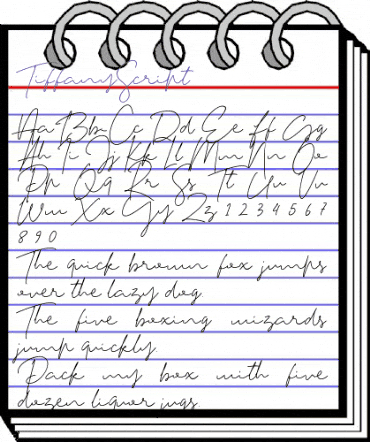 TiffanyScript
Aa Bb Cc Dd Ee Ff Gg
Hh Ii Jj Kk Ll Mm Nn Oo
Pp Qq Rr Ss Tt Uu Vv
Ww Xx Yy Zz 1 2 3 4 5 6 7
8 9 0
The quick brown fox jumps
over the lazy dog.
The five boxing wizards
jump quickly.
Pack my box with five
dozen liquor jugs.